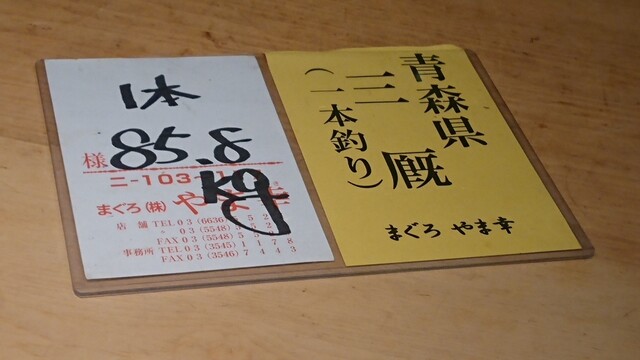 1本
85.8
kg
様
ニ-103-1
まぐろ(株) やま幸
店舗 TEL 03(6636)
〃 03(5548)
FAX 03(5548)
事務所 TEL 03(3545)1178
FAX 03(3546)7443
青森県
三厩
(一本釣り)
まぐろ やま幸